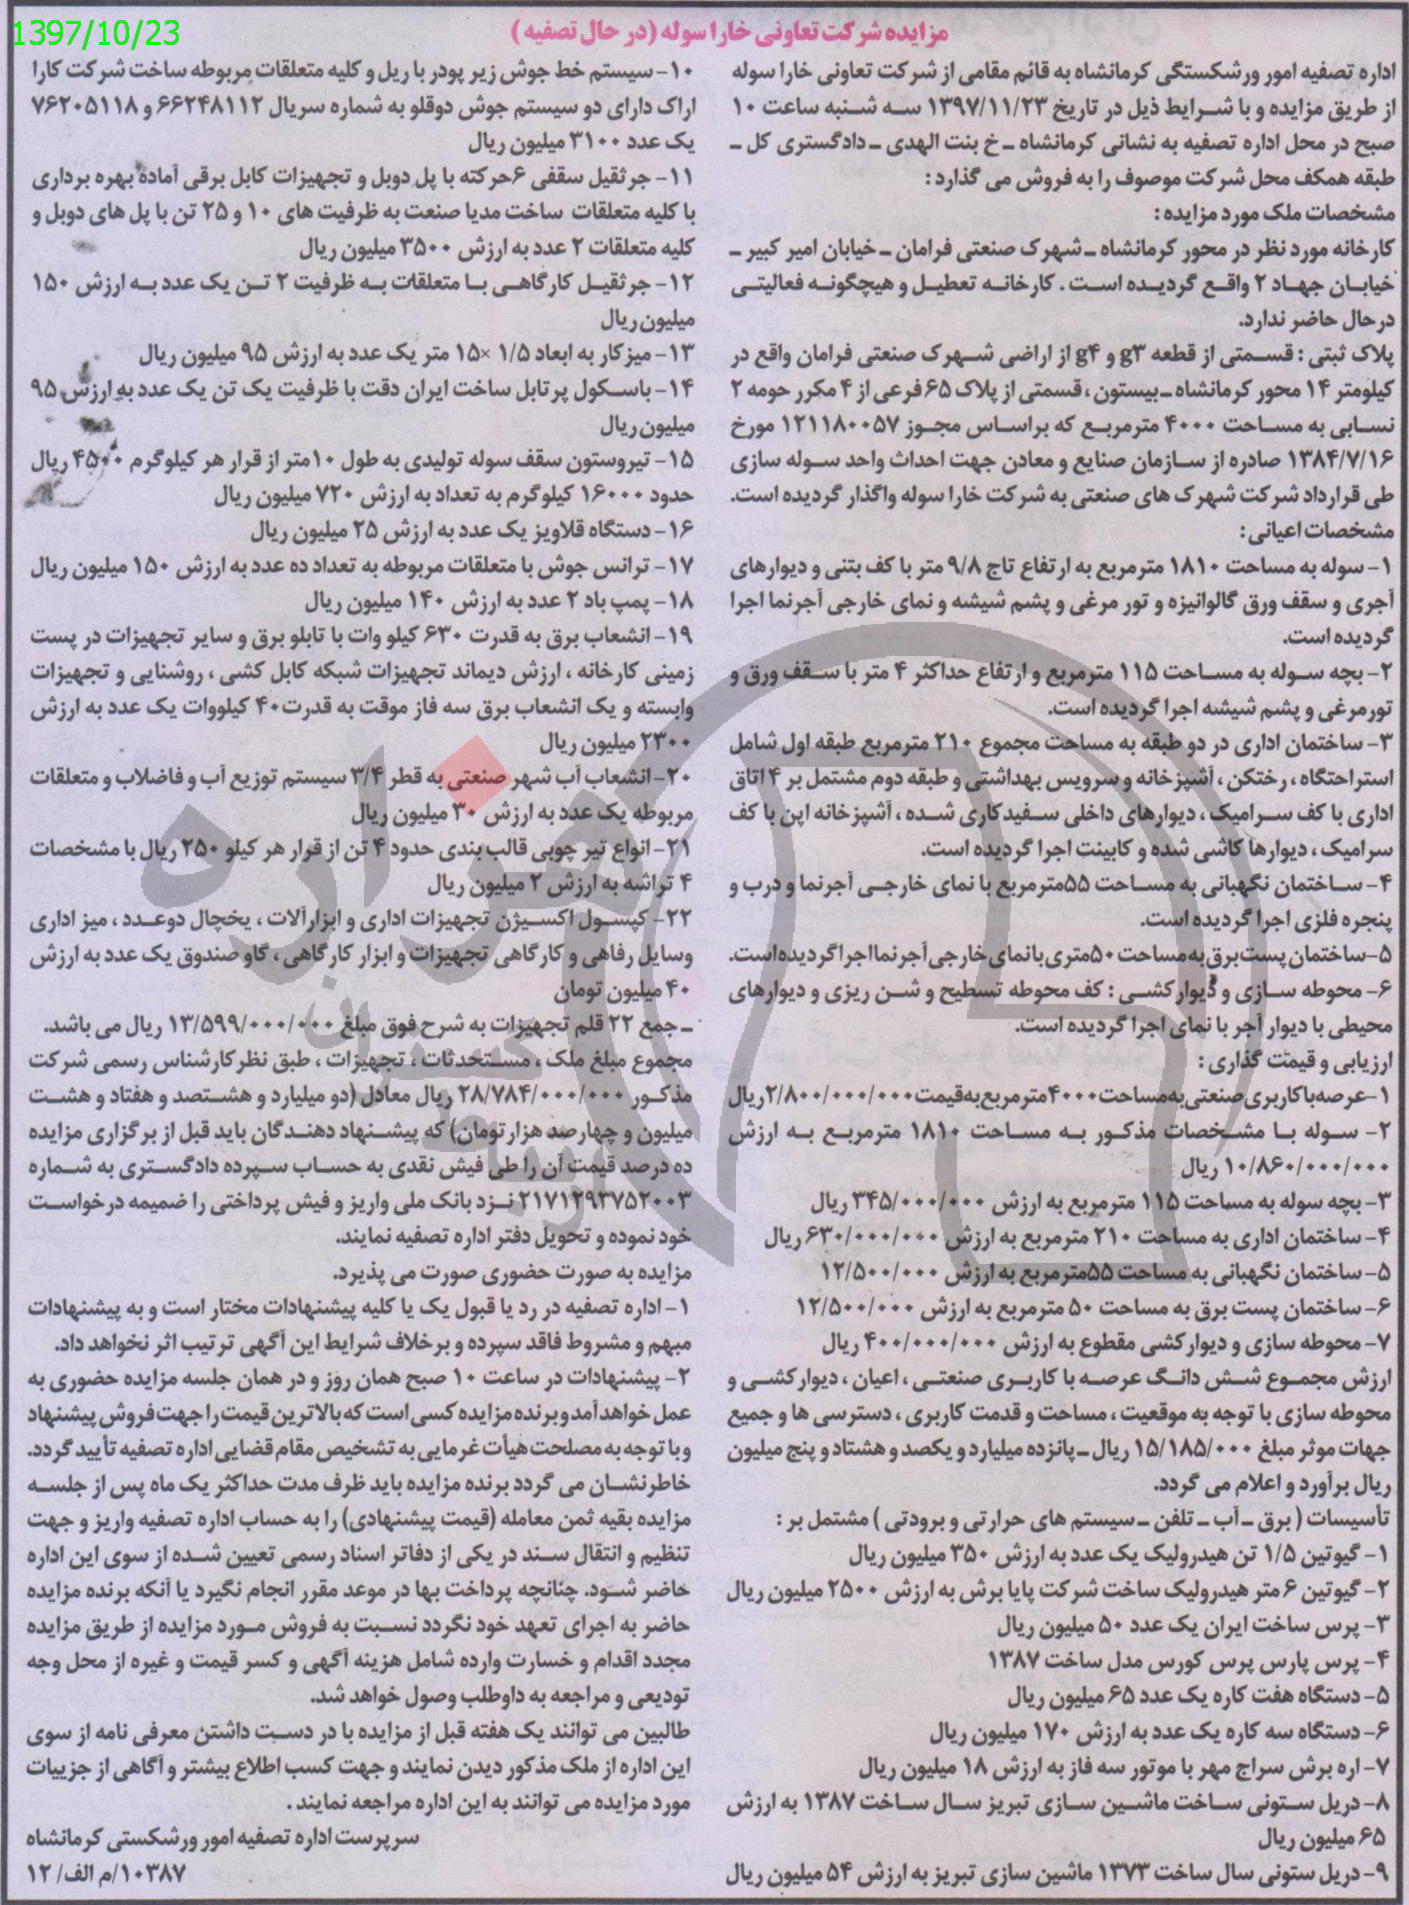 1397/10/23
مزایده شرکت تعاونی خارا سوله (در حال تصفیه)
اداره تصفیه امور ورشکستگی کرمانشاه به قائم مقامی از شرکت تعاونی خارا سوله
از طریق مزایده و با شرایط ذیل در تاریخ ۱۳۹۷/۱۱/۲۳ سه شنبه ساعت ۱۰
صبح در محل اداره تصفیه به نشانی کرمانشاه ـ خ بنت الهدی ـ دادگستری کل ـ
طبقه همکف محل شرکت موصوف را به فروش می گذارد:
مشخصات ملک مورد مزایده:
کارخانه مورد نظر در محور کرمانشاه ـ شهرک صنعتی فرامان ـ خیابان امیر کبیر ـ
خیابان جهاد ۲ واقع گردیده است . کارخانه تعطیل و هیچگونه فعالیتی
در حال حاضر ندارد.
پلاک ثبتی : قسمتی از قطعه g۳ و g۴ از اراضی شهرک صنعتی فرامان واقع در
کیلومتر ۱۴ محور کرمانشاه ـ بیستون ، قسمتی از پلاک ۶۵ فرعی از ۴ مکرر حومه ۲
نسابی به مساحت ۴۰۰۰ مترمربع که براساس مجوز ۱۲۱۱۸۰۰۵۷ مورخ
۱۳۸۴/۷/۱۶ صادره از سازمان صنایع و معادن جهت احداث واحد سوله سازی
طی قرارداد شرکت شهرک های صنعتی به شرکت خارا سوله واگذار گردیده است.
مشخصات اعیانی:
۱- سوله به مساحت ۱۸۱۰ مترمربع به ارتفاع تاج ۹/۸ متر با کف بتنی و دیوارهای
آجری و سقف ورق گالوانیزه و تور مرغی و پشم شیشه و نمای خارجی آجرنما اجرا
گردیده است.
۲- بچه سوله به مساحت ۱۱۵ مترمربع و ارتفاع حداکثر ۴ متر با سقف ورق و
تورمرغی و پشم شیشه اجرا گردیده است.
۳- ساختمان اداری در دو طبقه به مساحت مجموع ۲۱۰ مترمربع طبقه اول شامل
استراحتگاه ، رختکن ، آشپزخانه و سرویس بهداشتی و طبقه دوم مشتمل بر ۴ اتاق
اداری با کف سرامیک ، دیوارهای داخلی سفیدکاری شده ، آشپزخانه اپن با کف
سرامیک ، دیوارها کاشی شده و کابینت اجرا گردیده است.
۴- ساختمان نگهبانی به مساحت ۵۵مترمربع با نمای خارجی آجرنما و درب و
پنجره فلزی اجرا گردیده است.
۵- ساختمان پست برق به مساحت ۵۰متری با نمای خارجی آجرنما اجرا گردیده است.
۶- محوطه سازی و دیوارکشی : کف محوطه تسطیح و شن ریزی و دیوارهای
محیطی با دیوار آجر با نمای اجرا گردیده است.
ارزیابی و قیمت گذاری :
۱- عرصه با کاربری صنعتی به مساحت ۴۰۰۰مترمربع به قیمت ۲/۸۰۰/۰۰۰/۰۰۰ریال
۲- سوله با مشخصات مذکور به مساحت ۱۸۱۰ مترمربع به ارزش
۱۰/۸۶۰/۰۰۰/۰۰۰ ریال
۳- بچه سوله به مساحت ۱۱۵ مترمربع به ارزش ۳۴۵/۰۰۰/۰۰۰ ریال
۴- ساختمان اداری به مساحت ۲۱۰ مترمربع به ارزش ۶۳۰/۰۰۰/۰۰۰ ریال
۵- ساختمان نگهبانی به مساحت ۵۵مترمربع به ارزش ۱۲/۵۰۰/۰۰۰
۶- ساختمان پست برق به مساحت ۵۰ مترمربع به ارزش ۱۲/۵۰۰/۰۰۰
۷- محوطه سازی و دیوارکشی مقطوع به ارزش ۴۰۰/۰۰۰/۰۰۰ ریال
ارزش مجموع شش دانگ عرصه با کاربری صنعتی ، اعیان ، دیوارکشی و
محوطه سازی با توجه به موقعیت ، مساحت و قدمت کاربری ، دسترسی ها و جمیع
جهات موثر مبلغ ۱۵/۱۸۵/۰۰۰ ریال ـ پانزده میلیارد و یکصد و هشتاد و پنج میلیون
ریال برآورد و اعلام می گردد.
تأسیسات ( برق ـ آب ـ تلفن ـ سیستم های حرارتی و برودتی ) مشتمل بر :
۱- گیوتین ۱/۵ تن هیدرولیک یک عدد به ارزش ۳۵۰ میلیون ریال
۲- گیوتین ۶ متر هیدرولیک ساخت شرکت پایا برش به ارزش ۲۵۰۰ میلیون ریال
۳- پرس ساخت ایران یک عدد ۵۰ میلیون ریال
۴- پرس پارس پرس کورس مدل ساخت ۱۳۸۷
۵- دستگاه هفت کاره یک عدد ۶۵ میلیون ریال
۶- دستگاه سه کاره یک عدد به ارزش ۱۷۰ میلیون ریال
۷- اره برش سراج مهر با موتور سه فاز به ارزش ۱۸ میلیون ریال
۸- دریل ستونی ساخت ماشین سازی تبریز سال ساخت ۱۳۸۷ به ارزش
۶۵ میلیون ریال
۹- دریل ستونی سال ساخت ۱۳۷۳ ماشین سازی تبریز به ارزش ۵۴ میلیون ریال
۱۰- سیستم خط جوش زیر پودر با ریل و کلیه متعلقات مربوطه ساخت شرکت کارا
اراک دارای دو سیستم جوش دوقلو به شماره سریال ۶۶۲۴۸۱۱۲ و ۷۶۲۰۵۱۱۸
یک عدد ۳۱۰۰ میلیون ریال
۱۱- جرثقیل سقفی ۶حرکته با پل دوبل و تجهیزات کابل برقی آماده بهره برداری
با کلیه متعلقات ساخت مدیا صنعت به ظرفیت های ۱۰ و ۲۵ تن با پل های دوبل و
کلیه متعلقات ۲ عدد به ارزش ۳۵۰۰ میلیون ریال
۱۲- جرثقیل کارگاهی با متعلقات به ظرفیت ۲ تن یک عدد به ارزش ۱۵۰
میلیون ریال
۱۳- میزکار به ابعاد ۱/۵ ×۱۵ متر یک عدد به ارزش ۹۵ میلیون ریال
۱۴- باسکول پرتابل ساخت ایران دقت با ظرفیت یک تن یک عدد به ارزش ۹۵
میلیون ریال
۱۵- تیروستون سقف سوله تولیدی به طول ۱۰متر از قرار هر کیلوگرم ۴۵۰۰ ریال
حدود ۱۶۰۰۰ کیلوگرم به تعداد به ارزش ۷۲۰ میلیون ریال
۱۶- دستگاه قلاویز یک عدد به ارزش ۲۵ میلیون ریال
۱۷- ترانس جوش با متعلقات مربوطه به تعداد ده عدد به ارزش ۱۵۰ میلیون ریال
۱۸- پمپ باد ۲ عدد به ارزش ۱۴۰ میلیون ریال
۱۹- انشعاب برق به قدرت ۶۳۰ کیلو وات با تابلو برق و سایر تجهیزات در پست
زمینی کارخانه ، ارزش دیماند تجهیزات شبکه کابل کشی ، روشنایی و تجهیزات
وابسته و یک انشعاب برق سه فاز موقت به قدرت۴۰ کیلووات یک عدد به ارزش
۲۳۰۰ میلیون ریال
۲۰- انشعاب آب شهر صنعتی به قطر ۳/۴ سیستم توزیع آب و فاضلاب و متعلقات
مربوطه یک عدد به ارزش ۳۰ میلیون ریال
۲۱- انواع تیر چوبی قالب بندی حدود ۴ تن از قرار هر کیلو ۲۵۰ ریال با مشخصات
۴ تراشه به ارزش ۲ میلیون ریال
۲۲- کپسول اکسیژن تجهیزات اداری و ابزارآلات ، یخچال دوعدد ، میز اداری
وسایل رفاهی و کارگاهی تجهیزات و ابزار کارگاهی ، گاو صندوق یک عدد به ارزش
۴۰ میلیون تومان
ـ جمع ۲۲ قلم تجهیزات به شرح فوق مبلغ ۱۳/۵۹۹/۰۰۰/۰۰۰ ریال می باشد.
مجموع مبلغ ملک ، مستحدثات ، تجهیزات ، طبق نظر کارشناس رسمی شرکت
مذکور ۲۸/۷۸۴/۰۰۰/۰۰۰ ریال معادل (دو میلیارد و هشتصد و هفتاد و هشت
میلیون و چهارصد هزارتومان) که پیشنهاد دهندگان باید قبل از برگزاری مزایده
ده درصد قیمت آن را طی فیش نقدی به حساب سپرده دادگستری به شماره
۲۱۷۱۲۹۳۷۵۲۰۰۳ نزد بانک ملی واریز و فیش پرداختی را ضمیمه درخواست
خود نموده و تحویل دفتر اداره تصفیه نمایند.
مزایده به صورت حضوری صورت می پذیرد.
۱- اداره تصفیه در رد یا قبول یک یا کلیه پیشنهادات مختار است و به پیشنهادات
مبهم و مشروط فاقد سپرده و برخلاف شرایط این آگهی ترتیب اثر نخواهد داد.
۲- پیشنهادات در ساعت ۱۰ صبح همان روز و در همان جلسه مزایده حضوری به
عمل خواهد آمد و برنده مزایده کسی است که بالاترین قیمت را جهت فروش پیشنهاد
و با توجه به مصلحت هیأت غرمایی به تشخیص مقام قضایی اداره تصفیه تأیید گردد.
خاطرنشان می گردد برنده مزایده باید ظرف مدت حداکثر یک ماه پس از جلسه
مزایده بقیه ثمن معامله (قیمت پیشنهادی) را به حساب اداره تصفیه واریز و جهت
تنظیم و انتقال سند در یکی از دفاتر اسناد رسمی تعیین شده از سوی این اداره
حاضر شود. چنانچه پرداخت بها در موعد مقرر انجام نگیرد یا آنکه برنده مزایده
حاضر به اجرای تعهد خود نگردد نسبت به فروش مورد مزایده از طریق مزایده
مجدد اقدام و خسارت وارده شامل هزینه آگهی و کسر قیمت و غیره از محل وجه
تودیعی و مراجعه به داوطلب وصول خواهد شد.
طالبین می توانند یک هفته قبل از مزایده با در دست داشتن معرفی نامه از سوی
این اداره از ملک مذکور دیدن نمایند و جهت کسب اطلاع بیشتر و آگاهی از جزییات
مورد مزایده می توانند به این اداره مراجعه نمایند .
سرپرست اداره تصفیه امور ورشکستی کرمانشاه
۱۰۳۸۷/م الف/ ۱۲
هزاره